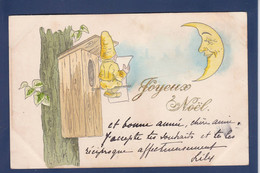 Joyeux
Noël.
et bonne année, chère amie.
J'accepte tes souhaits et te les
réciproque affectueusement